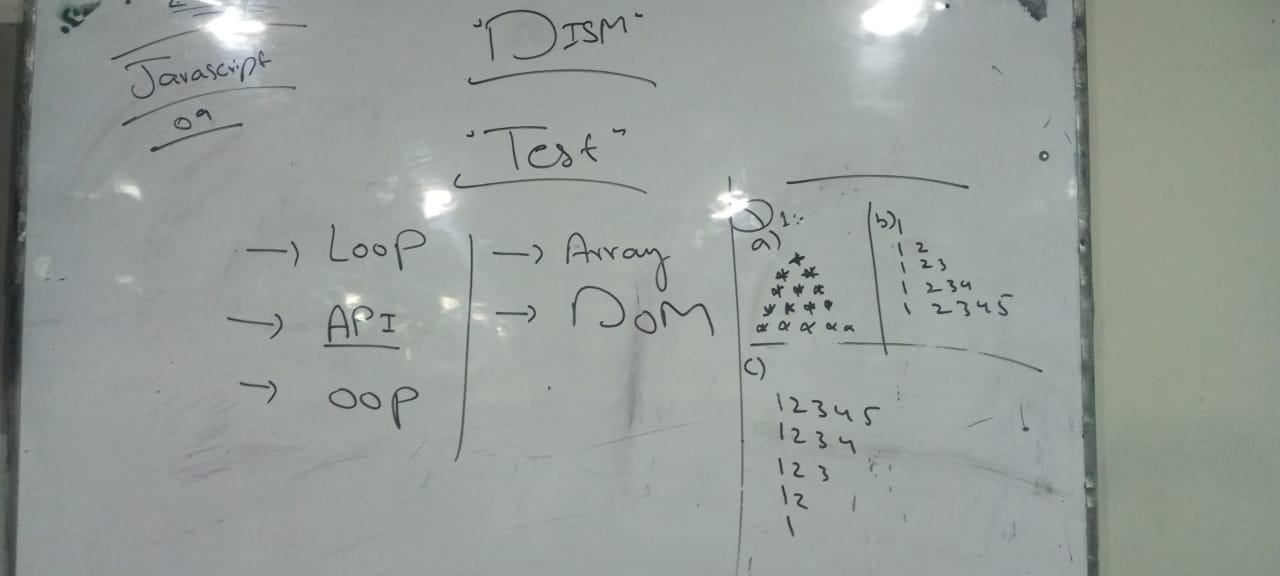 Javascript
09
"DISM"
"Test"
→ Loop
→ API
→ OOP
→ Array
→ DOM
Q1:
a)
*
* *
* * *
* * * *
* * * * *
b)
1
1 2
1 2 3
1 2 3 4
1 2 3 4 5
c)
1 2 3 4 5
1 2 3 4
1 2 3
1 2
1